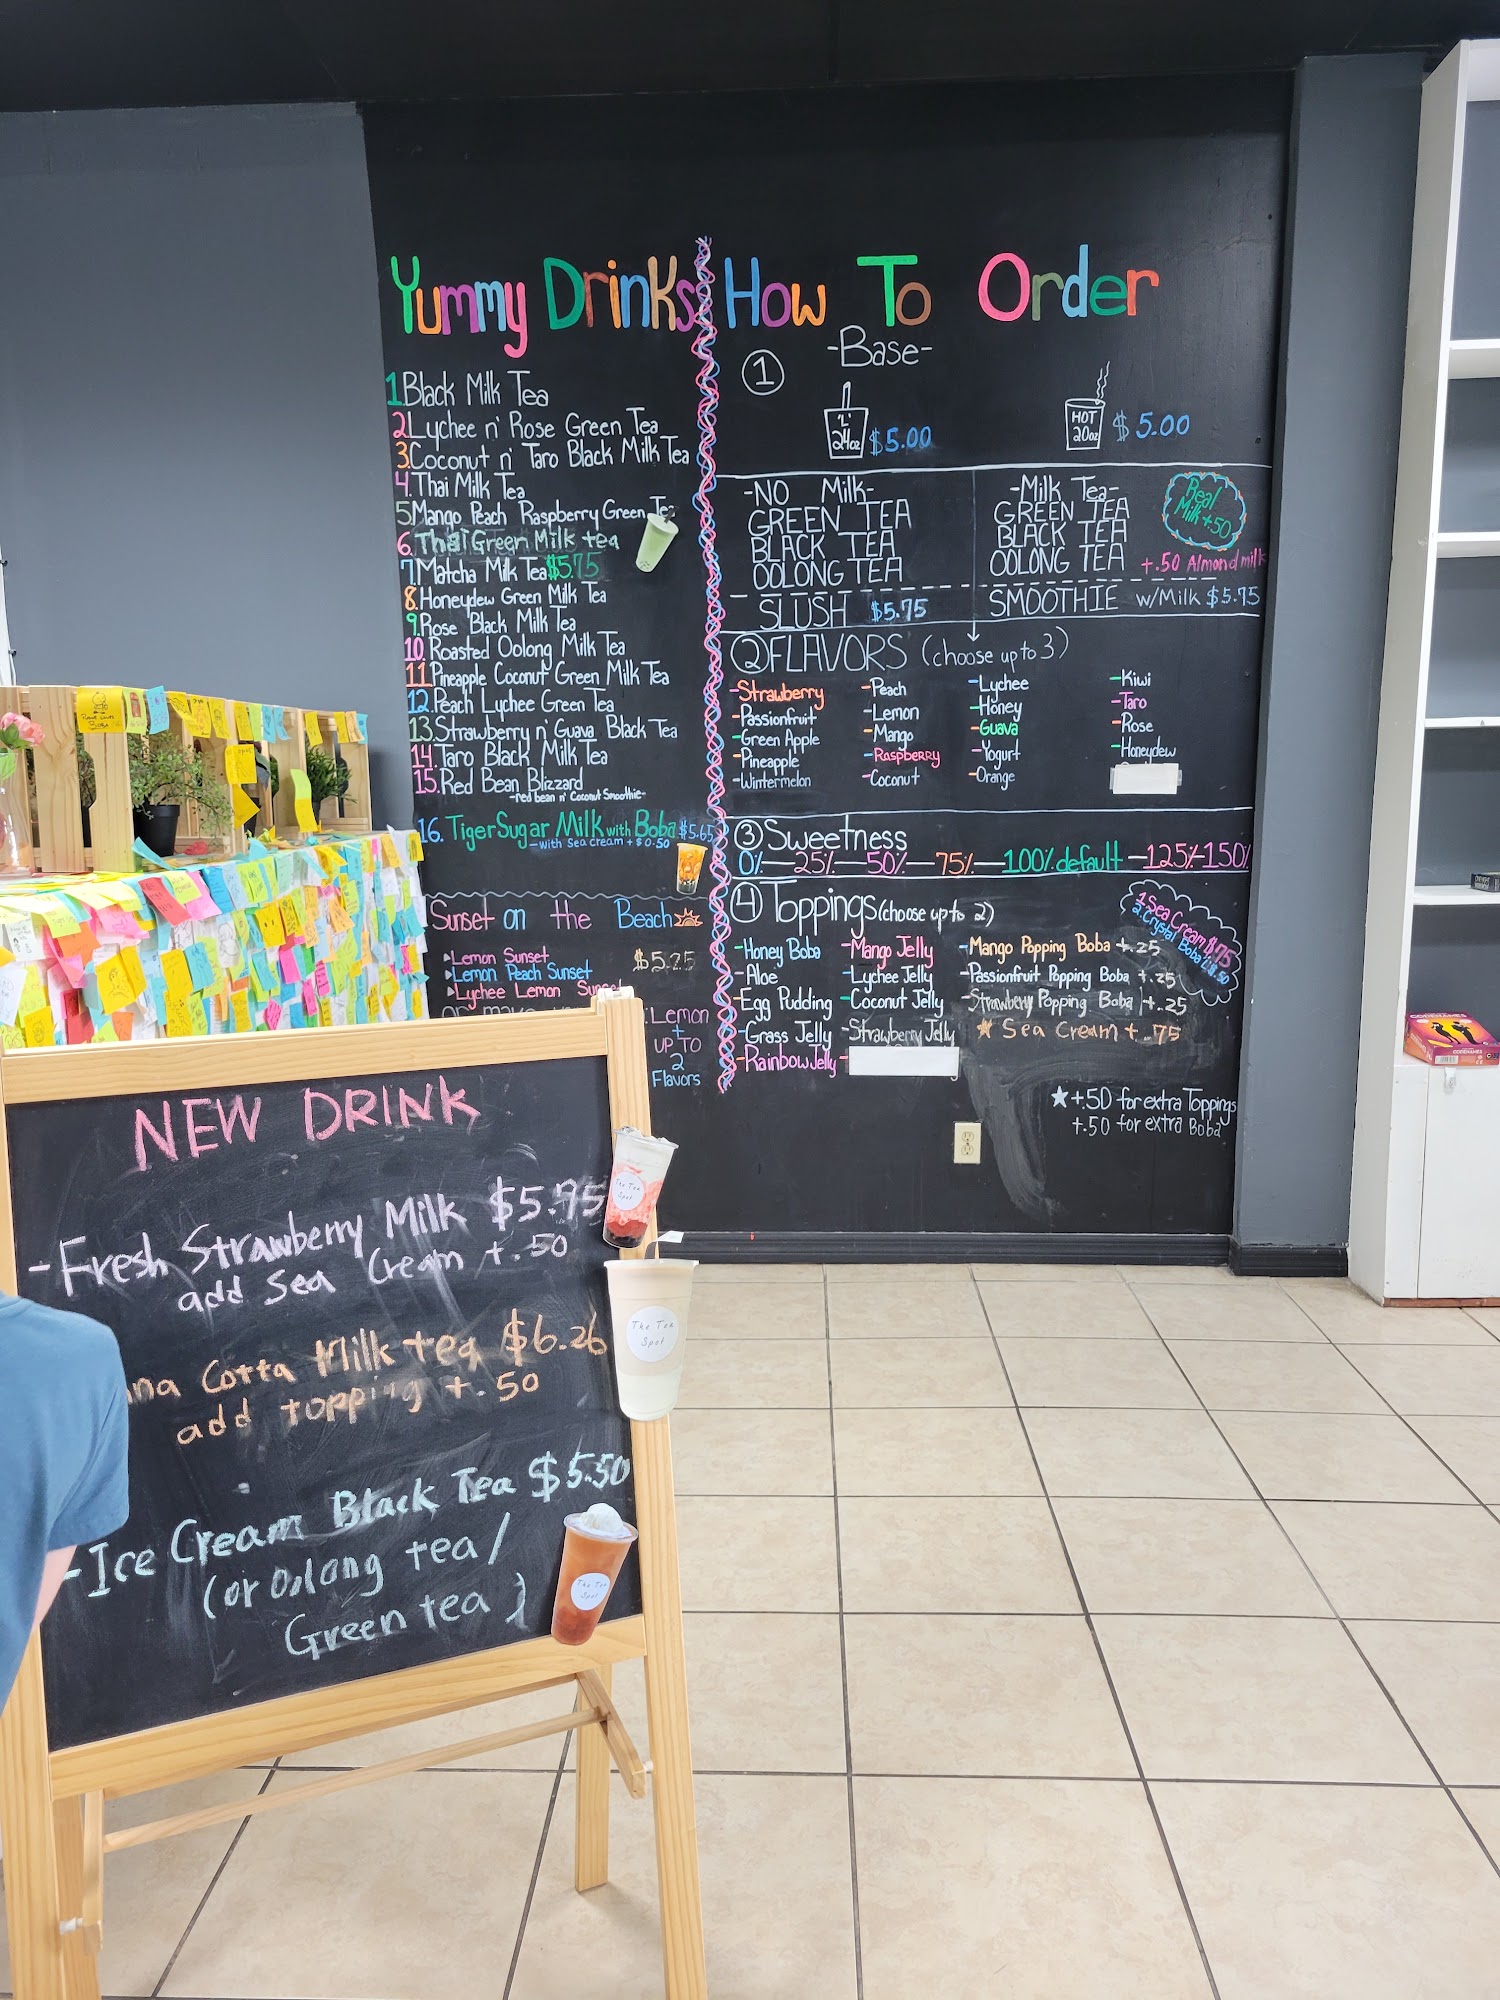 Yummy Drinks
1.Black Milk Tea
2.Lychee n' Rose Green Tea
3.Coconut n' Taro Black Milk Tea
4.Thai Milk Tea
5.Mango Peach Raspberry Green Tea
6.Thai Green Milk tea
7.Matcha Milk Tea $5.75
8.Honeydew Green Milk Tea
9.Rose Black Milk Tea
10.Roasted Oolong Milk Tea
11.Pineapple Coconut Green Milk Tea
12.Peach Lychee Green Tea
13.Strawberry n' Guava Black Tea
14.Taro Black Milk Tea
15.Red Bean Blizzard
-red bean n' Coconut Smoothie-
16. Tiger Sugar Milk with Boba $5.65
-with Sea cream +$0.50
Sunset on the Beach
Lemon Sunset $5.25
Lemon Peach Sunset
Lychee Lemon Sunset
Lemon
+
UP TO
2
Flavors
How To Order
1 -Base-
"L" 24oz $5.00
HOT 20oz $5.00
-NO Milk-
GREEN TEA
BLACK TEA
OOLONG TEA
SLUSH $5.75
-Milk Tea-
GREEN TEA
BLACK TEA
OOLONG TEA
Real
Milk +.50
+.50 Almond milk
SMOOTHIE w/Milk $5.75
2 FLAVORS (choose up to 3)
-Strawberry
-Passionfruit
-Green Apple
-Pineapple
-Wintermelon
-Peach
-Lemon
-Mango
-Raspberry
-Coconut
-Lychee
-Honey
-Guava
-Yogurt
-Orange
-Kiwi
-Taro
-Rose
-Honeydew
3 Sweetness
0%—25%—50%—75%—100% default—125%-150%
4 Toppings (choose up to 2)
-Honey Boba
-Aloe
-Egg Pudding
-Grass Jelly
-Rainbow Jelly
-Mango Jelly
-Lychee Jelly
-Coconut Jelly
-Strawberry Jelly
-Mango Popping Boba +.25
-Passionfruit Popping Boba +.25
-Strawberry Popping Boba +.25
★ Sea Cream +.75
1.Sea Cream
2.Crystal Boba
★+.50 for extra Toppings
+.50 for extra Boba
NEW DRINK
-Fresh Strawberry Milk $5.75
add Sea Cream +.50
Cotta Milk tea $6.26
add topping +.50
-Ice Cream Black Tea $5.50
(or Oolang tea/
Green tea)
The Tea
Spot
The Tea
Spot
The Tea
Spot
CODENAMES